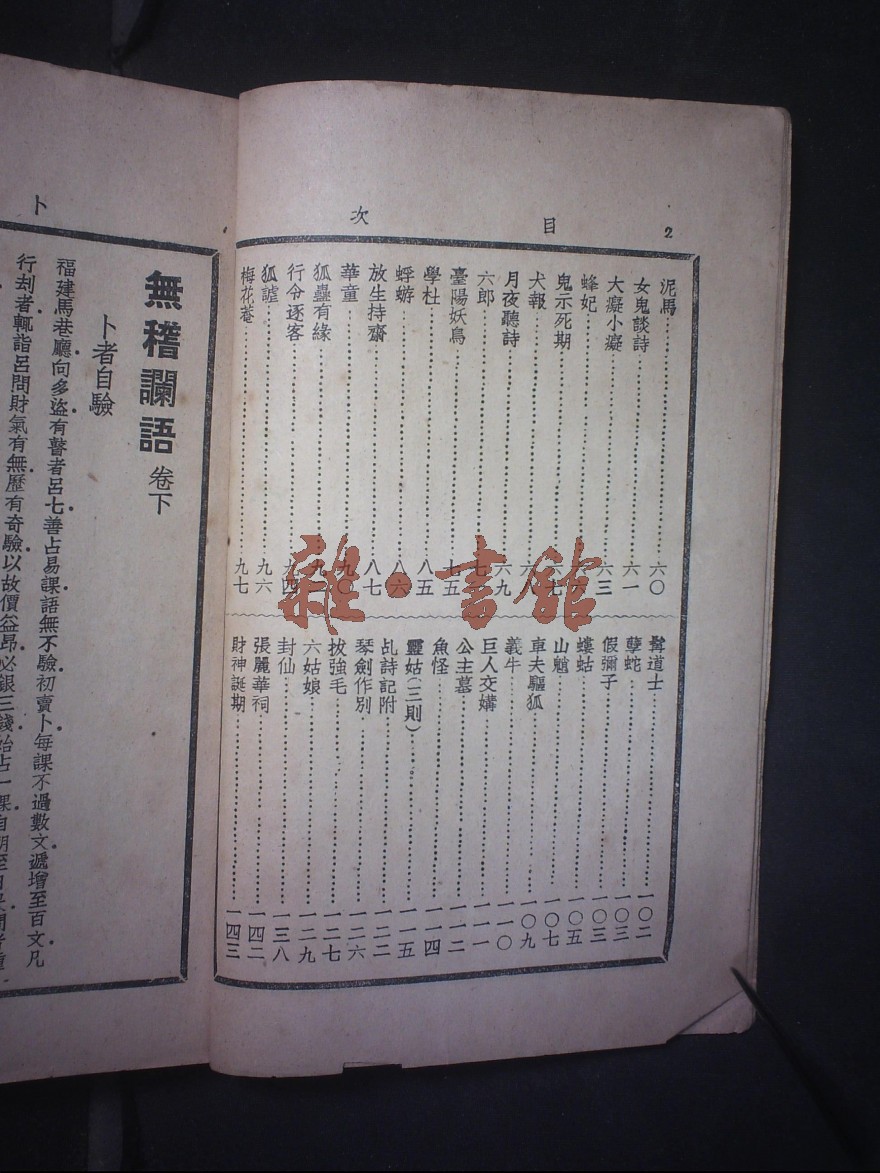 2
目次
泥馬 六〇
女鬼談詩 六一
大癡小癡 六三
蜂妃 六
鬼示死期 六七
犬報 六八
月夜聽詩 六九
六郎 七
臺陽妖鳥 七五
學杜 八五
蜉蝣 八六
放生持齋 八七
華童 九〇
狐蠱有緣 九
行令逐客 九四
狐謔 九六
梅花菴 九七
髯道士 一〇二
孽蛇 一〇三
假彌子 一〇三
螻蛄 一〇五
山魈 一〇七
車夫驅狐 一〇九
義牛 一一〇
巨人交媾 一一一
公主墓 一一二
魚怪 一一四
靈姑(三則) 一一五
乩詩記附 一二二
琴劍作別 一二六
拔強毛 一二七
六姑娘 一二九
封仙 一三八
張麗華祠 一四二
財神誕期 一四三
卜
無稽讕語 卷下
卜者自驗
福建馬巷廳向多盜有瞽者呂七善占易課語無不驗初賣卜每課不過數文遞增至百文凡
行刦者輒詣呂問財氣有無歷有奇驗以故價益昂必銀三錢始占一課自朝至
雜·書館